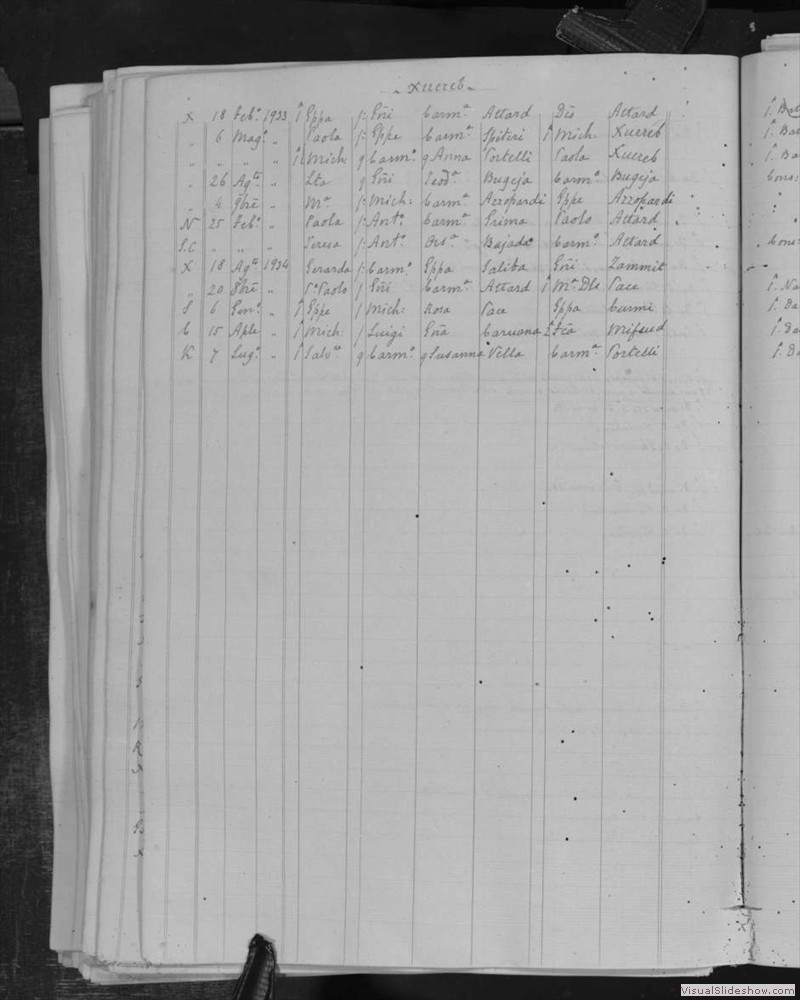 Xuereb
X 18 Febo. 1933 f Eppa f: Gñi Carma Attard Dis Attard
" 6 Mago. " Paola f: Eppe Carma Spiteri f Mich: Xuereb
" " " " f Mich: q Carmo. q Anna Portelli Paola Xuereb
" 26 Agto " Lta q Gñi Teoda Bugeja Carmo. Bugeja
" 4 9bre " Ma f: Mich: Carma Azzopardi Eppe Azzopardi
N 25 Febo. " Paola f: Anto. Carma Grima Paolo Attard
S.C " " " Teresa f: Anto. Bajada Carmo. Attard
X 18 Agto 1934 Gerarda f: Carmo. Eppa Saliba Gñi Zammit
" 20 8bre " Po Paolo f: Gñi Carma Attard f Ma Dls Pace
S 6 Geno. " f Eppe f Mich: Rosa Pace Eppa Curmi
C 15 Aple " f Mich: f Luigi Gña Caruana Mifsud
K 7 Lugo. " f Salvre q Carmo. q Susanna Vella Carma Portelli
f. Bat
f. Bat
f. Ba
Cons:
Cons:
f. Na
f. Da
f. Da
f. Da
VisualSlideshow.com